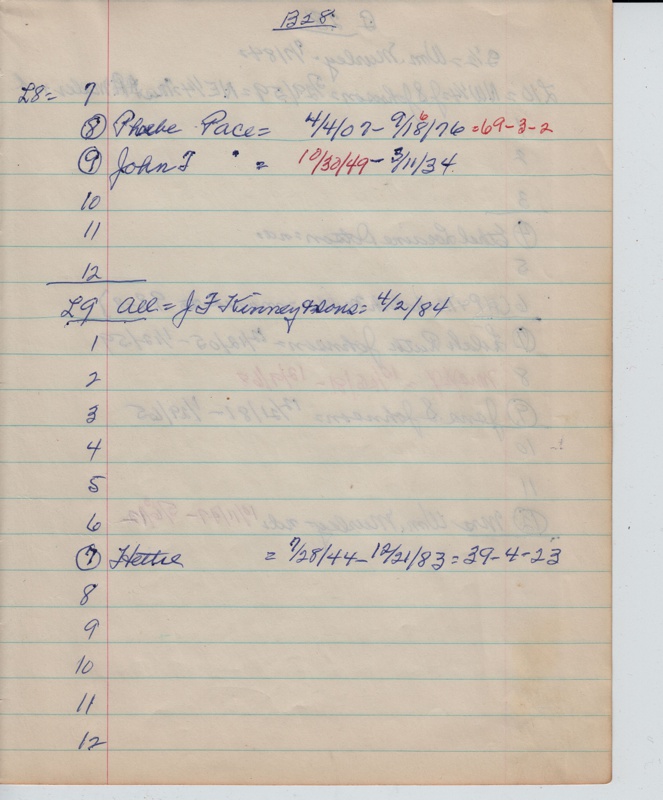 B28
L8= 7
⑧ Phoebe Pace = 4/4/07 - 9/18/76 = 69-3-2
⑨ John F " = 10/30/49 - 3/11/34
10
11
12
L9 All = J F Kinney & Sons = 4/2/84
1
2
3
4
5
6
⑦ Hettie = 7/28/44 - 12/21/83 = 39-4-23
8
9
10
11
12